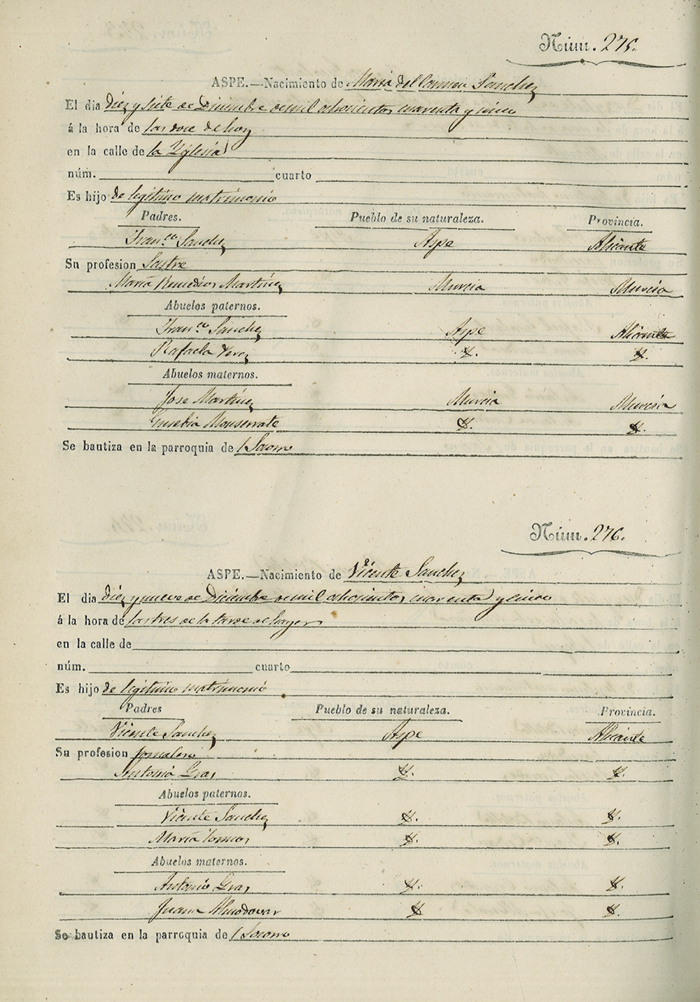 Núm. 275.
ASPE.—Nacimiento de Maria del Carmen Sanchez
El dia diez y siete de Diciembre de mil ochocientos cuarenta y cinco
á la hora de las doce de hoy
en la calle de la Yglesia
núm. cuarto
Es hijo de legitimo matrimonio
Padres. Pueblo de su naturaleza. Provincia.
Fran.co Sanchez Aspe Alicante
Su profesion Sastre
Maria Remedios Martinez Murcia Murcia
Abuelos paternos.
Fran.co Sanchez Aspe Alicante
Rafaela
Abuelos maternos.
Jose Martinez Murcia Murcia
Eusebia Monserrate
Se bautiza en la parroquia de l Socorro
Núm. 276.
ASPE.—Nacimiento de Vicente Sanchez
El dia diez y nueve de Diciembre de mil ochocientos cuarenta y cinco
á la hora de las tres de la tarde de hayer
en la calle de
núm. cuarto
Es hijo de legitimo matrimonio
Padres Pueblo de su naturaleza. Provincia.
Vicente Sanchez Aspe Alicante
Su profesion Jornalero
Antonia Gras
Abuelos paternos.
Vicente Sanchez
Maria
Abuelos maternos.
Antonio Gras
Juana Almodovar
Se bautiza en la parroquia de l Socorro